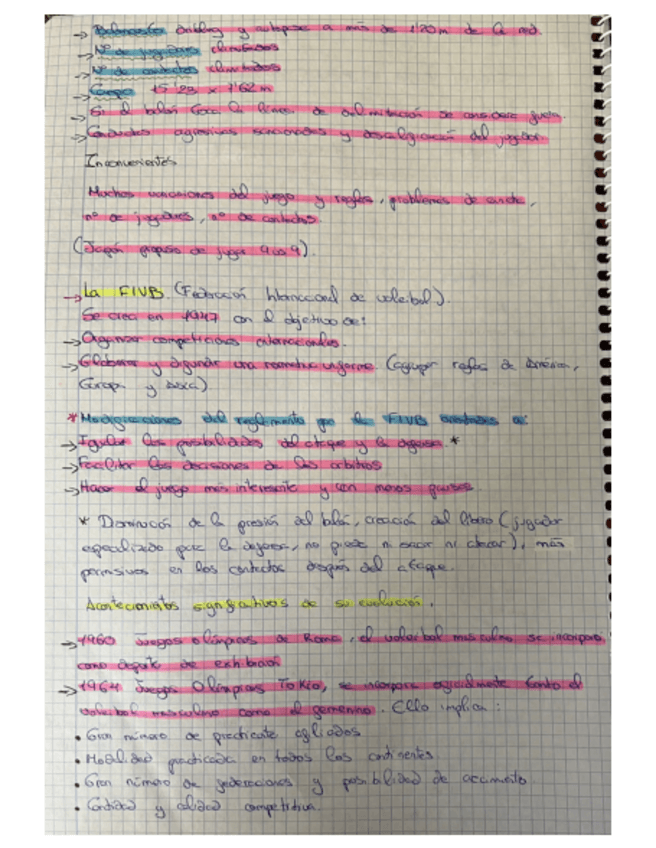 → Baloncesto dribling y autopase a más de 1'20 m de la red.
→ Nº de jugadores ilimitados
→ Nº de contactos ilimitados
→ Campo 15'23 x 7'62 m
→ Si el balón toca la línea de delimitación se considera fuera.
→ Conductas agresivas sancionadas y descalificación del jugador.
Inconvenientes
Muchas variaciones del juego y reglas, problemas de
nº de jugadores, nº de contactos.
(Japón propuso de jugar 9 vs 9).
→ La FIVB (Federación Internacional de voleibol).
Se crea en 1947 con el objetivo de:
→ Organizar competiciones internacionales.
→ Elaborar y difundir una normativa uniforme (agrupar reglas de América,
Europa y Asia)
* Modificaciones del reglamento por la FIVB orientadas a:
→ Igualar las posibilidades del ataque y la defensa. *
→ Facilitar las decisiones de los árbitros
→ Hacer el juego más interesante y con menos pausas
* Disminución de la presión del balón, creación del líbero (jugador
especializado para la defensa, no puede ni sacar ni atacar), más
permisivos en los contactos después del ataque.
Acontecimientos significativos de su evolución.
→ 1960 Juegos olímpicos de Roma, el voleibol masculino se incorpora
como deporte de exhibición
→ 1964 Juegos Olímpicos Tokio, se incorpora oficialmente tanto el
voleibol masculino como el femenino. Ello implica:
• Gran número de practicante afiliados
• Modalidad practicada en todos los continentes.
• Gran número de federaciones y posibilidad de
• Cantidad y calidad competitiva.